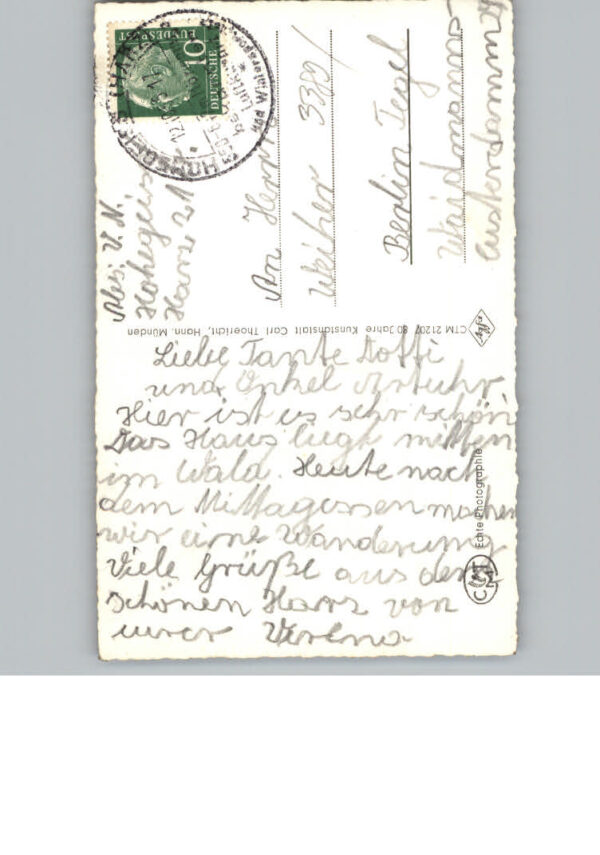 10
DEUTSCHE
BUNDESPOST
HOHEGEISS (HARZ)
Abs. V. N.
Hohegeiss
Harz 21
An Henry
Weiher 3389/
Berlin Tegel
Waidmanns-
CTM 21207 80 Jahre Kunstanstalt Carl Thoericht, Hann. Münden
Liebe Tante Dotti
und Onkel Artuhr
Hier ist es sehr schön
Das Haus liegt mitten
im Wald. Heute nach
dem Mittagessen machen
wir eine Wanderung
Viele Grüße aus dem
schönen Harz von
eurer Verena
Echte Photographie